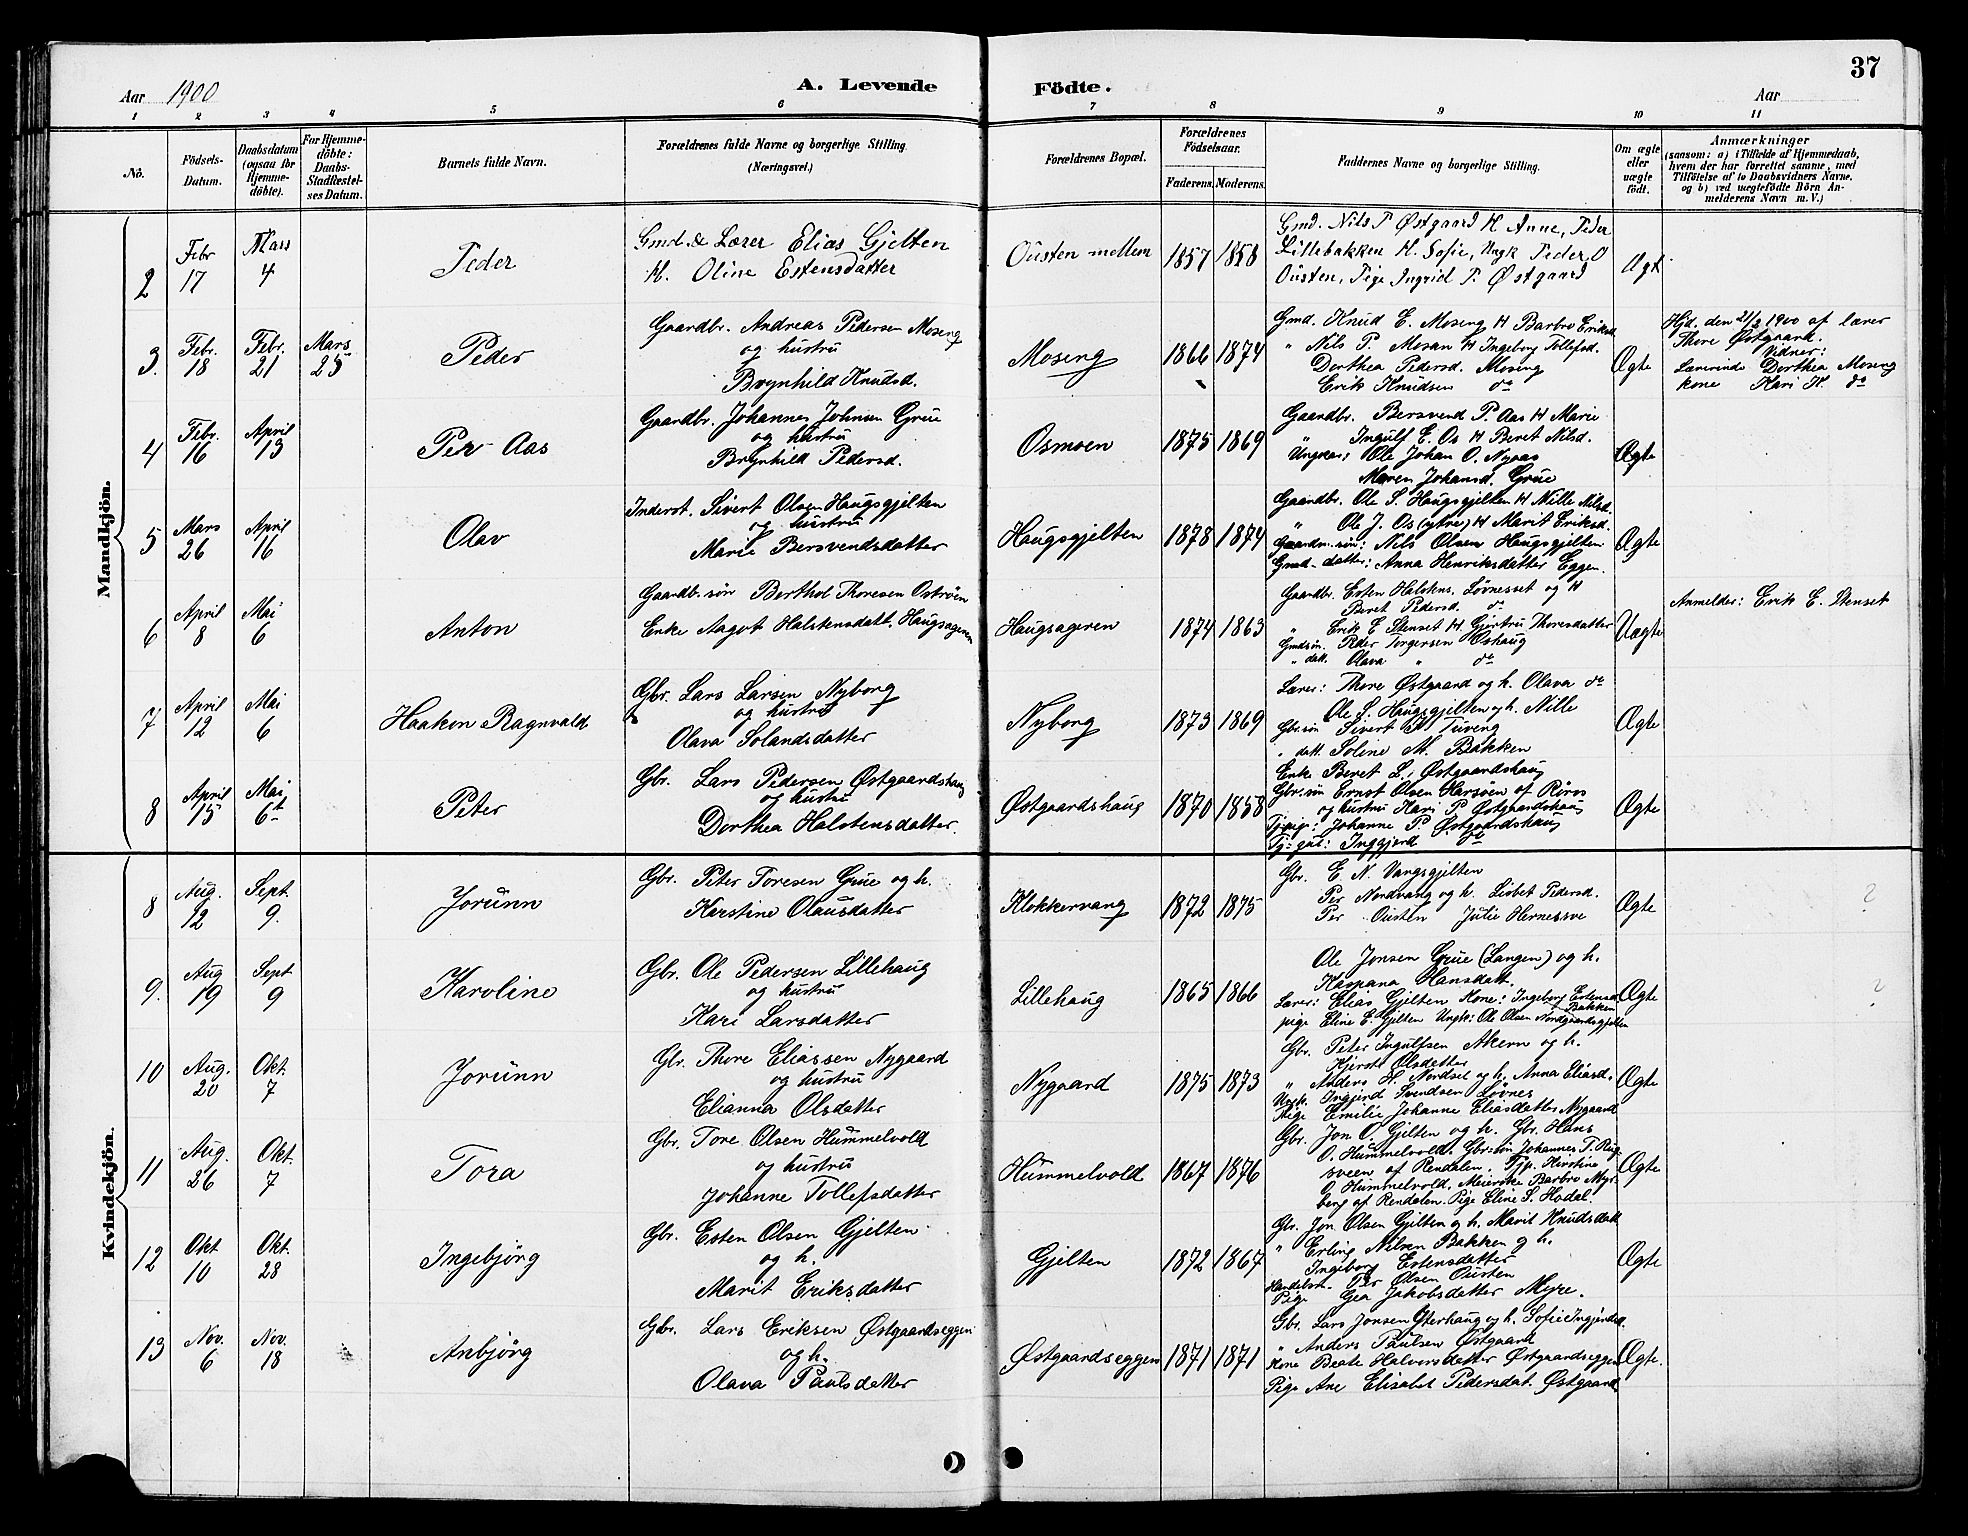 37
Aar 1900
A. Levende
Födte.
Aar
1 2 3 4 5 6 7 8 9 10 11
No.
Födsels-
Datum.
Daabsdatum
(ogsaa for
Hjemme-
döbte).
For Hjemme-
döbte:
Daabs-
Stadfæstel-
ses Datum.
Barnets fulde Navn.
Forældrenes fulde Navne og borgerlige Stilling.
(Næringsvei.)
Forældrenes Bopæl.
Forældrenes
Födselsaar.
Faderens. Moderens.
Faddernes Navne og borgerlige Stilling.
Om ægte
eller
uægte
födt.
Anmærkninger
(saasom: a) i Tilfælde af Hjemmedaab,
hvem der har forrettet samme, med
Tilföielse af to Daabsvidners Navne,
og b) ved uægtefödte Börn An-
melderens Navn m. V.)
Mandkjön.
2
Febr
17
Mars
4
Peder
Gmd. & Lærer Elias Gjelten
H. Oline Estensdatter
Ousten mellem
1857 1858
Gmd. Nils P Østgaard H Anne, Peder
Lillebakken H. Sofie, Ungk Peder O
Ousten, Pige Ingrid P. Østgaard
Ægt
3.
Febr.
18
Febr.
21
Mars
25
Peder
Gaardbr. Andreas Pedersen Moseng
og hustru
Brynhild Knudsd.
Moseng
1866 1874
Gmd. Knud E. Moseng H Barbro Eriksd.
" Nils P. Mosan H Ingeborg Tollefsd.
Dorthea Pedersd. Moseng
Erik Knudsen do
Ægte
Hjd. den 21/2 1900 af lærer
Thore Østgaard.
Vidner:
Lærerinde Dorthea Moseng
kone Kari H. do
4
Febr.
16
April
13
Per Aas
Gaardbr. Johannes Johnsen Grue
og hustru
Brynhild Pedersd.
Osmoen
1875 1869
Gaardbr. Bersvend P. Aas H Marie
" Ingulf E. Os H Beret Nilsd.
Ungkar: Ole Johan O. Nyaas
Maren Johansd. Grue
Ægte
5
Mars
26
April
16
Olav
Inderst. Sivert Olsen Haugsgjelten
og hustru
Marie Bersvendsdatter
Haugsgjelten
1878 1874
Gaardbr. Ole S. Haugsgjelten H Nille Nilsd.
" Ole J. Os (ytre) H Marit Eriksd.
Gaardm. søn: Nils Olsen Haugsgjelten
Gmd-datter: Anna Henriksdatter Eggen.
Ægte
6
April
8
Mai
6
Anton
Gaardbr. søn Berthol Thoresen Ostrøen
Enke Aagot Halstensdatt. Haugsageren
Haugsageren
1874 1863
Gaardbr. Esten Halstens. Løvnesset og H
Beret Pedersd. do
" Erik E Stenset H Gjertru Thoresdatter
Gmdsøn. Peder Torgersen Oshaug
" datt. Olava " do
Uægte
Anmelder: Erik E. Stenset
7
April
12
Mai
6
Haakon Ragnvald
Gbr. Lars Larsen Nyborg
og hustru
Olava Solandsdatter
Nyborg
1873 1869
Lærer: Thore Østgaard og h. Olava do
Ole S. Haugsgjelten og h. Nille
Gbr.søn Sivert M Tuveng
" datt. Soline M. Bakken
Ægte
8
April
15
Mai
6t
Peter
Gbr. Lars Pedersen Østgaardshaug
og hustru
Dorthea Halstensdatter.
Østgaardshaug
1870 1858
Enke Beret L. Østgaardshaug
Gbr.søn Ernst Olsen Harsøen af Röros
og hustru Kari P. Østgaardshaug
Tj.pige: Johanne P. Østgaardshaug
Tj.gut: Inggjerd do
Ægte
Kvindekjön.
8
Aug.
12
Sept.
9.
Jorunn
Gbr. Peter Toresen Grue og h.
Kerstine Olausdatter
Klokkervang
1872 1875
Gbr. E. N. Vangsgjelten
Per Nordvang og h. Lisbet Pedersd.
Per Ousten Julie Hernessve
Ægte
?
9.
Aug
19
Sept
9
Karoline
Gbr. Ole Pedersen Lillehaug
og hustru
Kari Larsdatter
Lillehaug
1865 1866
Ole Jonsen Grue (Langen) og h.
Kaspana Hansdatt.
Lærer: Elias Gjelten Kone: Ingeborg Estensd.
Bakken
pige Eline E. Gjelten Ungk: Ole Olsen Nordgaardsgjelten
Ægte
?
10
Aug.
20
Okt.
7
Jorunn
Gbr. Thore Eliassen Nygaard
og hustru
Elianna Olsdatter
Nygaard
1875 1873
Gbr. Peter Ingulfsen Akern og h.
Kjersti Olsdatter
" Anders H. Nordset og h. Anna Eliasd.
Ungk. Ingjerd Svendsen Løvnes
Pige Emilie Johanne Eliasdatter Nygaard
Ægte
11
Aug.
26
Okt.
7
Tora
Gbr. Tore Olsen Hummelvold
og hustru
Johanne Tollefsdatter
Hummelvold
1867 1876
Gbr. Jon O. Gjelten og h. Gbr. Hans
O. Hummelvold. Gbr.søn Johannes T. Ring
sveen af Rendalen. Tjp. Kirstine
O. Hummelvold. Meierske Barbro Myr-
berg af Rendalen. Pige Eline S. Hodal.
Ægte
12
Okt
10
Okt.
28
Ingebjörg
Gbr. Esten Olsen Gjelten
og h.
Marit Eriksdatter
Gjelten
1872 1867
Gbr. Jon Olsen Gjelten og h. Marit Knudsdatt
" Erling Nilsen Bakken og h.
Ingeborg Estensdatter
Handelsb. Per Olsen Ousten
Pige Gea Jakobsdatter Myre.
Ægte
13
Nov.
6
Nov.
18
Anbjörg
Gbr. Lars Eriksen Østgaardseggen
og h.
Olava Paulsdatter
Østgaardseggen
1871 1871
Gbr. Lars Jonsen Ytterhaug og h. Sofie Ingjerdsd.
" Anders Paulsen Østgaard
Kone Beate Halversdatter Østgaardseggen
Pige Ane Elisabet Pedersdat. Østgaard
Ægte.